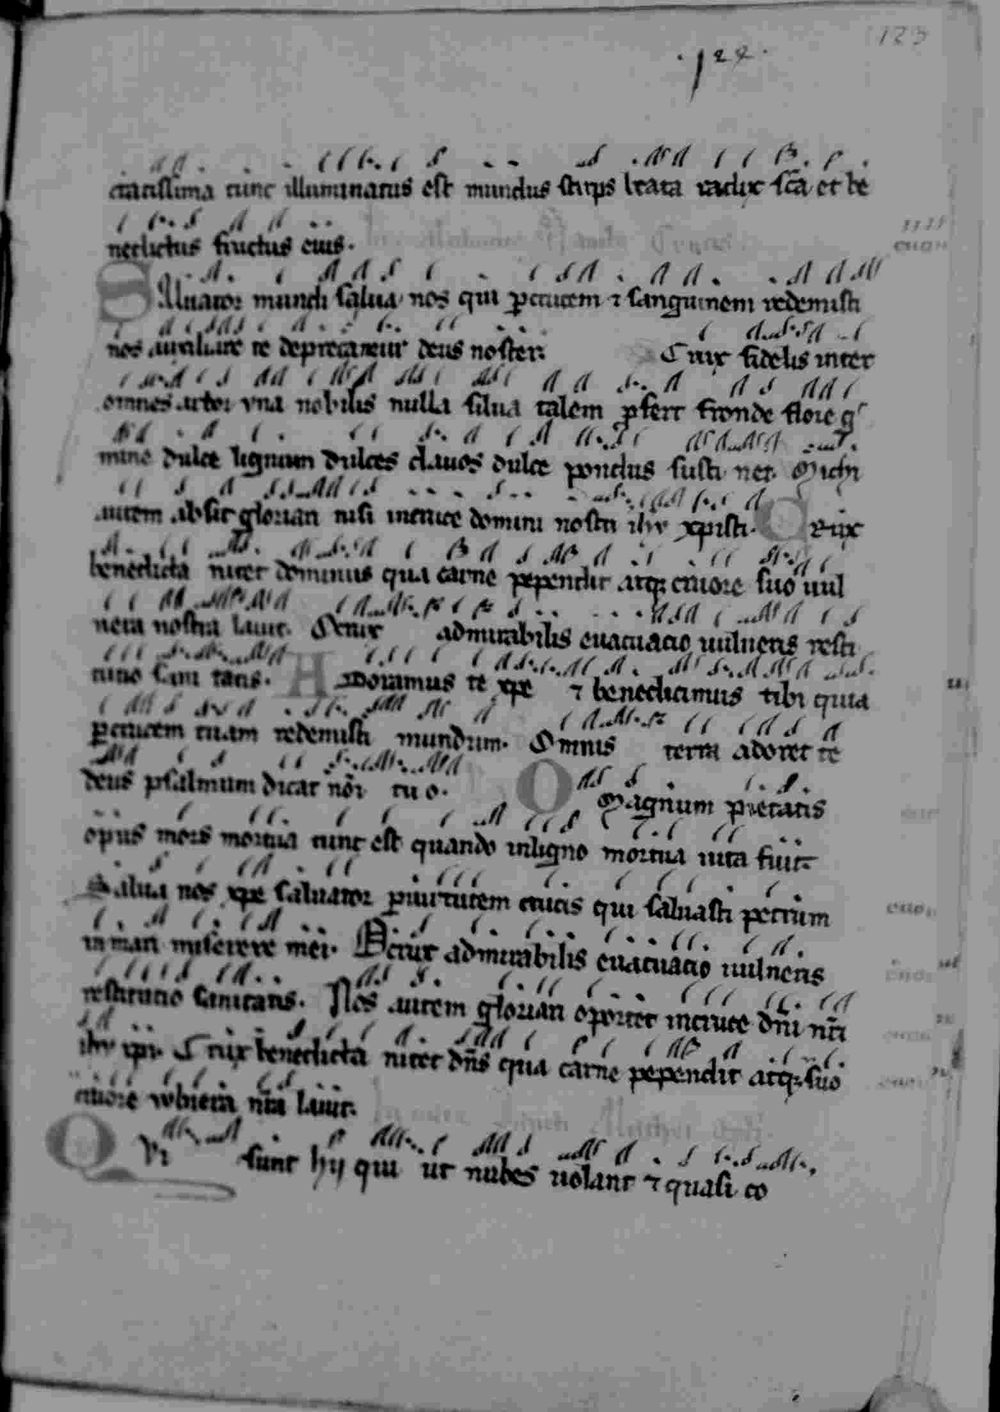 123
.122.
clarissima tunc illuminatus est mundus stirps beata radix sc̄a et be
nedictus fructus eius.
Saluator mundi salua nos qui per crucem ⁊ sanguinem redemisti
nos auxiliare te deprecamur deus noster. Crux fidelis inter
omnes arbor vna nobilis nulla silua talem ꝓfert fronde flore g
mine dulce lignum dulces clauos dulce pondus susti net. Michi
autem absit gloriari nisi in cruce domini nostri ihv xpisti. Crux
benedicta nitet dominus qua carne pependit atq; cruore suo uul
nera nostra lauit. O crux admirabilis euacuatio uulneris resti
tutio sani tatis. Adoramus te xpe ⁊ benedicimus tibi quia
per crucem tuam redemisti mundum. Omnis terra adoret te
deus psalmum dicat nōi tu o. O Magnum pietatis
opus mors mortua tunc est quando in ligno mortua uita fuit.
Salua nos xpe saluator per uirtutem crucis qui saluasti petrum
in mari miserere mei. O crux admirabilis euacuatio uulneris
restitutio sanitatis. Nos autem gloriari oportet in cruce dn̄i nr̄i
ihv xpi. Crux benedicta nitet dn̄s qua carne pependit atq; suo
cruore nr̄a lauit.
QVi sunt hij qui ut nubes uolant ⁊ quasi co